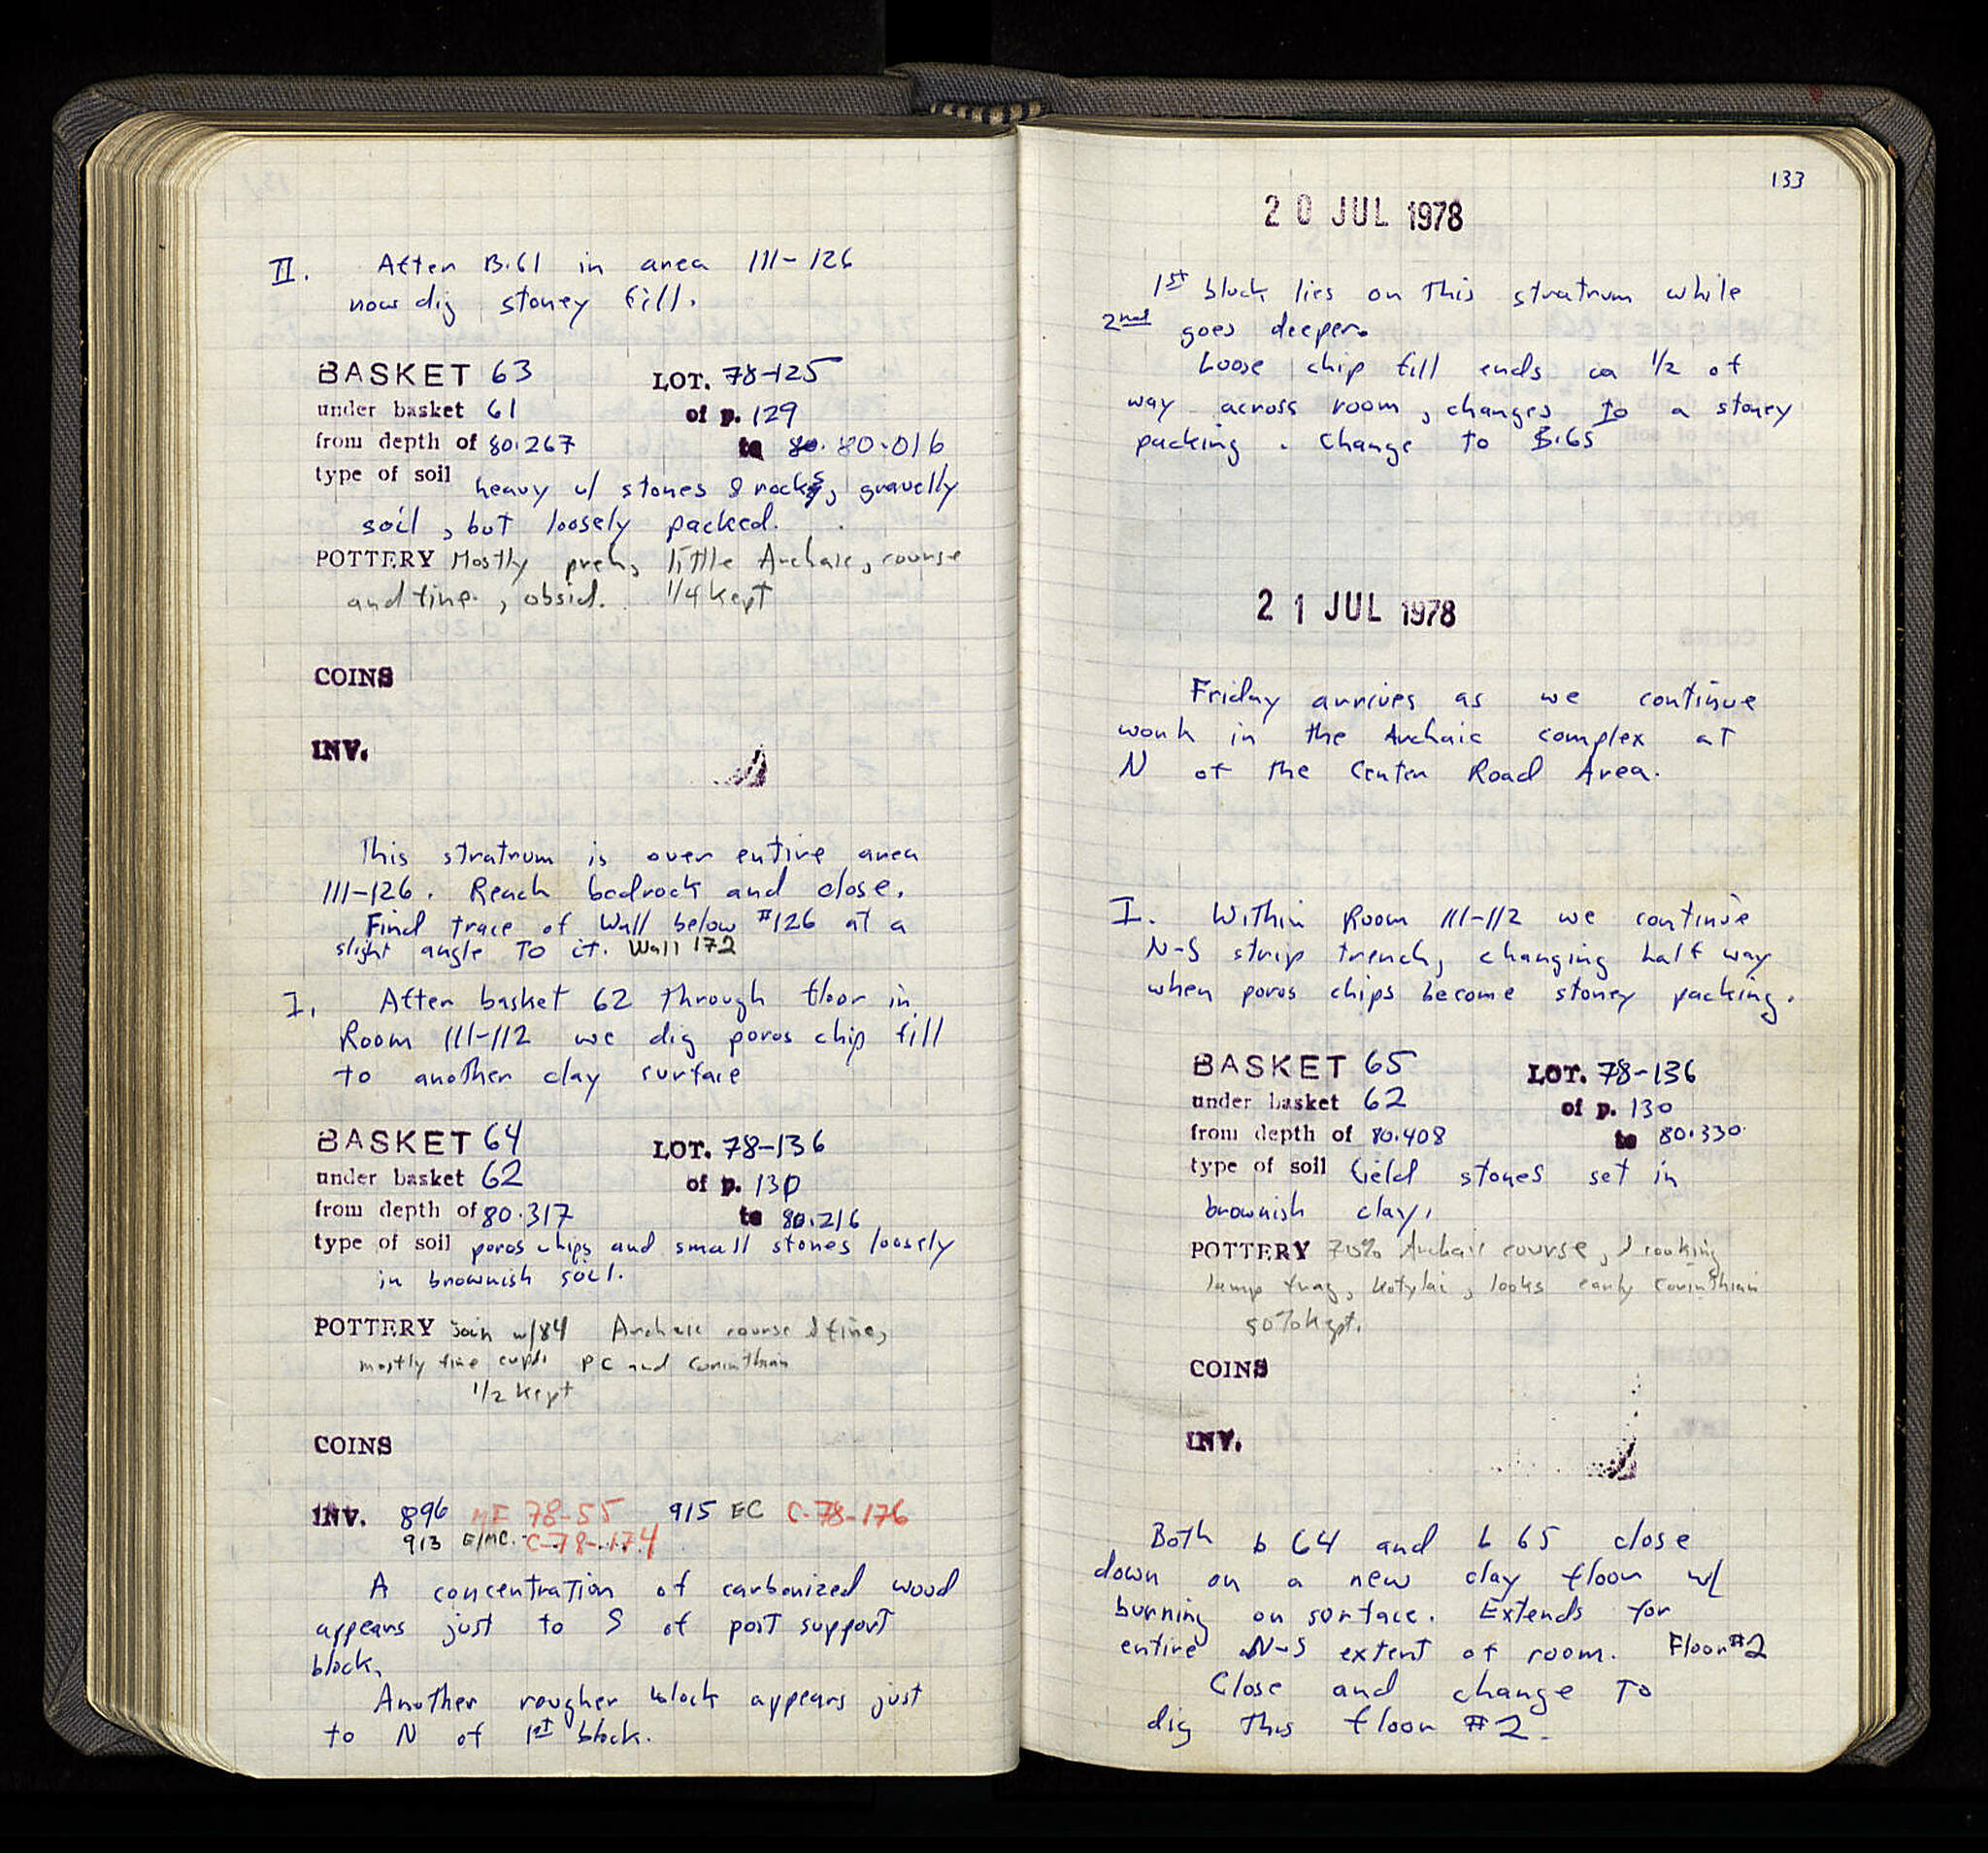 II. After B.61 in area 111-126
now dig stoney fill.
BASKET 63 LOT. 78-125
under basket 61 of p. 129
from depth of 80.267 to 80.016
type of soil heavy w/ stones & rocks, gravelly
soil, but loosely packed.
POTTERY Mostly preh, little Archaic, course
and fine, obsid. 1/4 kept
COINS
INV.
This stratrum is over entire area
111-126. Reach bedrock and close.
Find trace of Wall below #126 at a
slight angle To it. Wall 172
I. After basket 62 through floor in
Room 111-112 we dig poros chip fill
to another clay surface
BASKET 64 LOT. 78-136
under basket 62 of p. 130
from depth of 80.317 to 80.216
type of soil poros chips and small stones loosely
in brownish soil.
POTTERY join w/84 Archaic course & fine,
mostly fine cups. PC and Corinthian
1/2 kept
COINS
INV. 896 MF 78-55 915 EC C-78-176
913 E/MC. C-78-174
A concentration of carbonized wood
appears just to S of post support
block.
Another rougher block appears just
to N of 1st block.
133
20 JUL 1978
1st block lies on this stratrum while
2nd goes deeper.
Loose chip fill ends ca 1/2 of
way across room, changes to a stoney
packing. Change to B.65
21 JUL 1978
Friday arrives as we continue
work in the Archaic complex at
N of the Center Road Area.
I. Within Room 111-112 we continue
N-S strip trench, changing half way
when poros chips become stoney packing.
BASKET 65 LOT. 78-136
under basket 62 of p. 130
from depth of 80.408 to 80.330
type of soil field stones set in
brownish clay.
POTTERY 70% Archaic course, & cooking
lamp frag, kotylai, looks early Corinthian
50% kept.
COINS
INV.
Both b 64 and b 65 close
down on a new clay floor w/
burning on surface. Extends for
entire N-S extent of room. Floor #2
Close and change To
dig this floor #2.